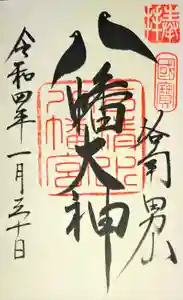 奉拝
國寶
八幡大神
石清水八幡宮
令和四年一月三十日